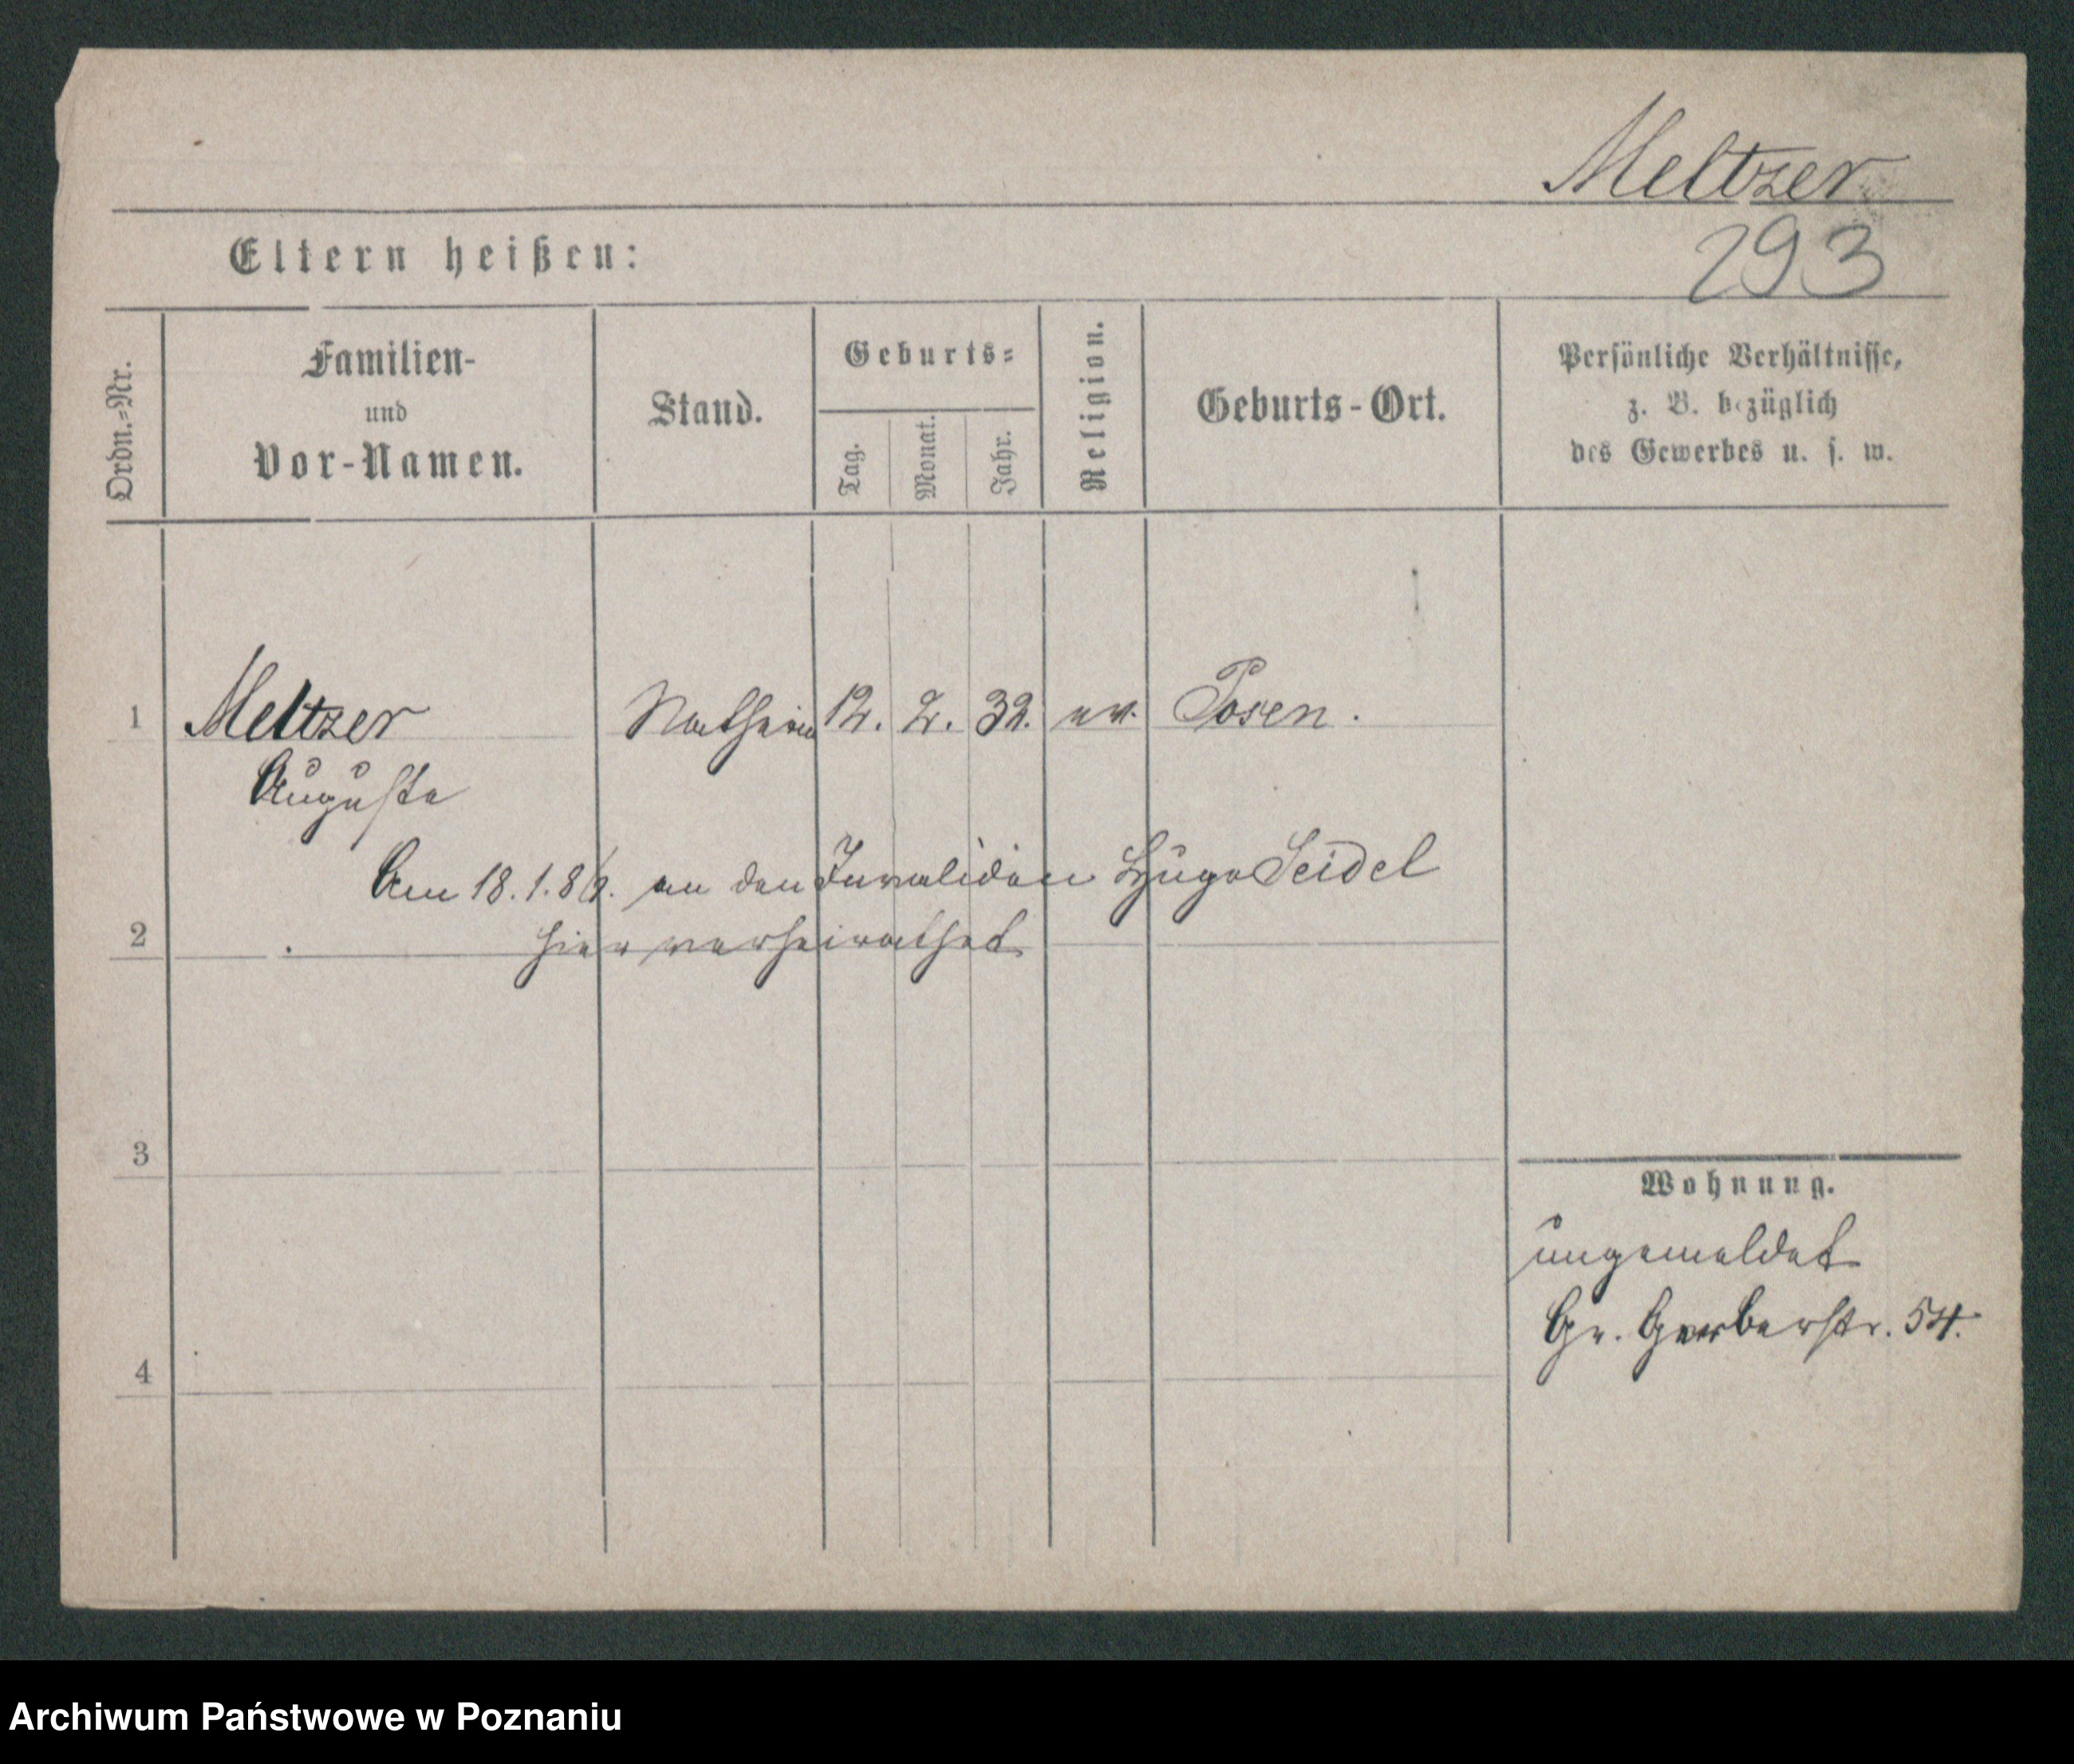 Meltzer
293
Eltern heißen:
Ordn.-Nr.
Familien-
und
Vor-Namen.
Stand.
Geburts-
Tag.
Monat.
Jahr.
Religion.
Geburts-Ort.
Persönliche Verhältnisse,
z. B. bezüglich
des Gewerbes u. s. w.
1 Meltzer 12. 2. 32. ev. Posen.
Auguste
Am 18.1. an den Invaliden Hugo Seidel
2 hier verheirathet
3
Wohnung.
ungemeldet
Gr. Gerberstr. 54.
4
Archiwum Państwowe w Poznaniu